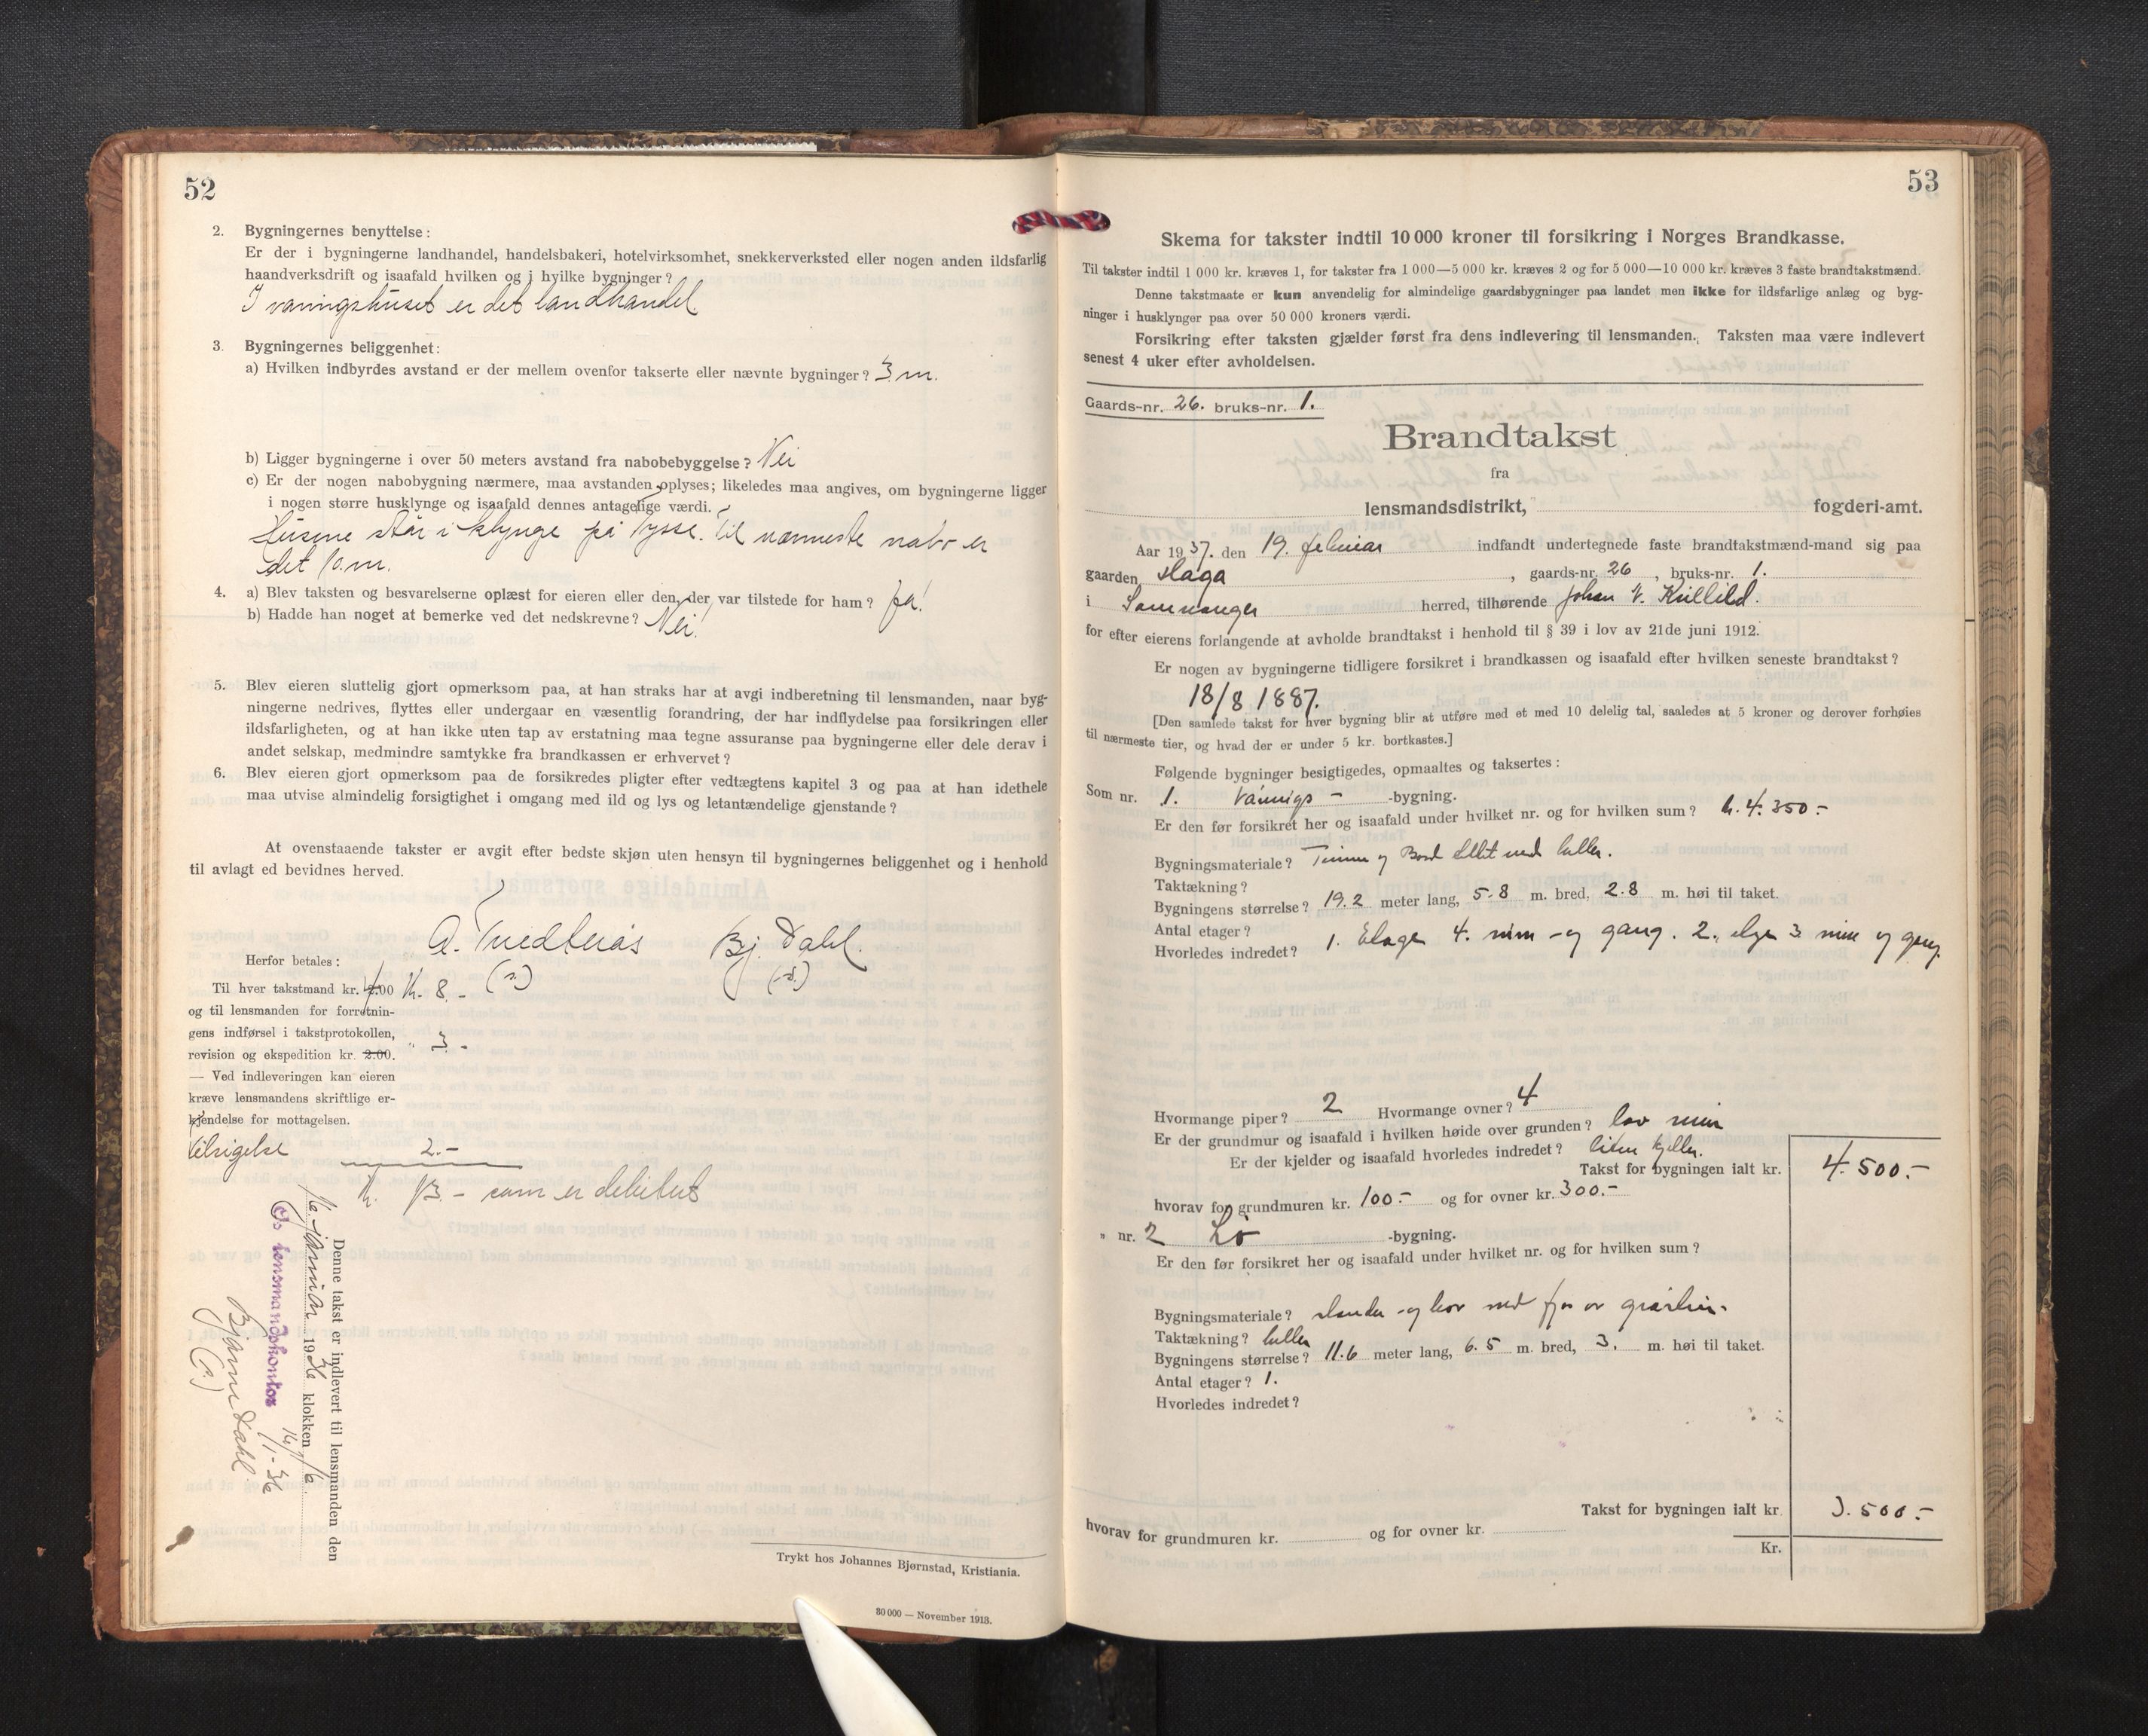 52
2. Bygningernes benyttelse:
Er der i bygningerne landhandel, handelsbakeri, hotelvirksomhet, snekkerverksted eller nogen anden ildsfarlig
haandverksdrift og isaafald hvilken og i hvilke bygninger?
I vaningshuset er det landhandel
3. Bygningernes beliggenhet:
a) Hvilken indbyrdes avstand er der mellem ovenfor takserte eller nævnte bygninger? 3 m.
b) Ligger bygningerne i over 50 meters avstand fra nabobebyggelse? Nei
c) Er der nogen nabobygning nærmere, maa avstanden oplyses; likeledes maa angives, om bygningerne ligger
i nogen større husklynge og isaafald dennes antagelige værdi.
Husene står i klynge på Tysse. Til nærmeste nabo er
det 10 m.
4. a) Blev taksten og besvarelserne oplæst for eieren eller den, der var tilstede for ham? Ja!
b) Hadde han noget at bemerke ved det nedskrevne? Nei!
5. Blev eieren sluttelig gjort opmerksom paa, at han straks har at avgi indberetning til lensmanden, naar byg-
ningerne nedrives, flyttes eller undergaar en væsentlig forandring, der har indflydelse paa forsikringen eller
ildsfarligheten, og at han ikke uten tap av erstatning maa tegne assuranse paa bygningerne eller dele derav i
andet selskap, medmindre samtykke fra brandkassen er erhvervet?
6. Blev eieren gjort opmerksom paa de forsikredes pligter efter vedtægtens kapitel 3 og paa at han idethele
maa utvise almindelig forsigtighet i omgang med ild og lys og letantændelige gjenstande?
At ovenstaaende takster er avgit efter bedste skjøn uten hensyn til bygningernes beliggenhet og i henhold
til avlagt ed bevidnes herved.
A. Bj. Dahl.
(s.) (s.)
Herfor betales:
Til hver takstmand kr. 4.00 Kr. 8.-
og til lensmanden for forretnin-
gens indførsel i takstprotokollen,
revision og ekspedition kr. 2.00. " 3.-
— Ved indleveringen kan eieren
kræve lensmandens skriftlige er-
kjendelse for mottagelsen.
2.-
Kr. 13.- som er debitert
Denne takst er indlevert til lensmanden den
16. januar 1936 klokken
Os lensmandskontor 16/1-36
Bjarne Dahl
(s.)
Trykt hos Johannes Bjørnstad, Kristiania.
30 000 — November 1918.
53
Skema for takster indtil 10 000 kroner til forsikring i Norges Brandkasse.
Til takster indtil 1 000 kr. kræves 1, for takster fra 1 000—5 000 kr. kræves 2 og for 5 000—10 000 kr. kræves 3 faste brandtakstmænd.
Denne takstmaate er kun anvendelig for almindelige gaardsbygninger paa landet men ikke for ildsfarlige anlæg og byg-
ninger i husklynger paa over 50 000 kroners værdi.
Forsikring efter taksten gjælder først fra dens indlevering til lensmanden. Taksten maa være indlevert
senest 4 uker efter avholdelsen.
Gaards-nr. 26. bruks-nr. 1.
Brandtakst
fra
lensmandsdistrikt, fogderi-amt.
Aar 1937. den 19. februar indfandt undertegnede faste brandtakstmænd-mand sig paa
gaarden Haga, gaards-nr. 26, bruks-nr. 1.
i Samnanger herred, tilhørende Johan V.
for efter eierens forlangende at avholde brandtakst i henhold til § 39 i lov av 21de juni 1912.
Er nogen av bygningerne tidligere forsikret i brandkassen og isaafald efter hvilken seneste brandtakst?
18/8 1887.
[Den samlede takst for hver bygning blir at utføre med et med 10 delelig tal, saaledes at 5 kroner og derover forhøies
til nærmeste tier, og hvad der er under 5 kr. bortkastes.]
Følgende bygninger besigtigedes, opmaaltes og taksertes:
Som nr. 1. Vånings- -bygning.
Er den før forsikret her og isaafald under hvilket nr. og for hvilken sum? kr. 4.350.-
Bygningsmateriale? Tømmer og Bord
Taktækning?
Bygningens størrelse? 19.2 meter lang, 5.8 m. bred, 2.8 m. høi til taket.
Antal etager?
Hvorledes indredet? 1. Etage 4. rum og gang. 2. etge 3 rum og gang.
Hvormange piper? 2 Hvormange ovner? 4
Er der grundmur og isaafald i hvilken høide over grunden? lav mur
Er der kjelder og isaafald hvorledes indredet? liten kjeller.
Takst for bygningen ialt kr. 4.500.-
hvorav for grundmuren kr. 100.- og for ovner kr. 300.-
" nr. 2 Lø -bygning.
Er den før forsikret her og isaafald under hvilket nr. og for hvilken sum?
Bygningsmateriale? og bor med fjøs av gråstein.
Taktækning? heller
Bygningens størrelse? 11.6 meter lang, 6.5 m. bred, 3. m. høi til taket.
Antal etager? 1.
Hvorledes indredet?
Takst for bygningen ialt kr 3.500.-
hvorav for grundmuren kr. og for ovner kr.
Kr.